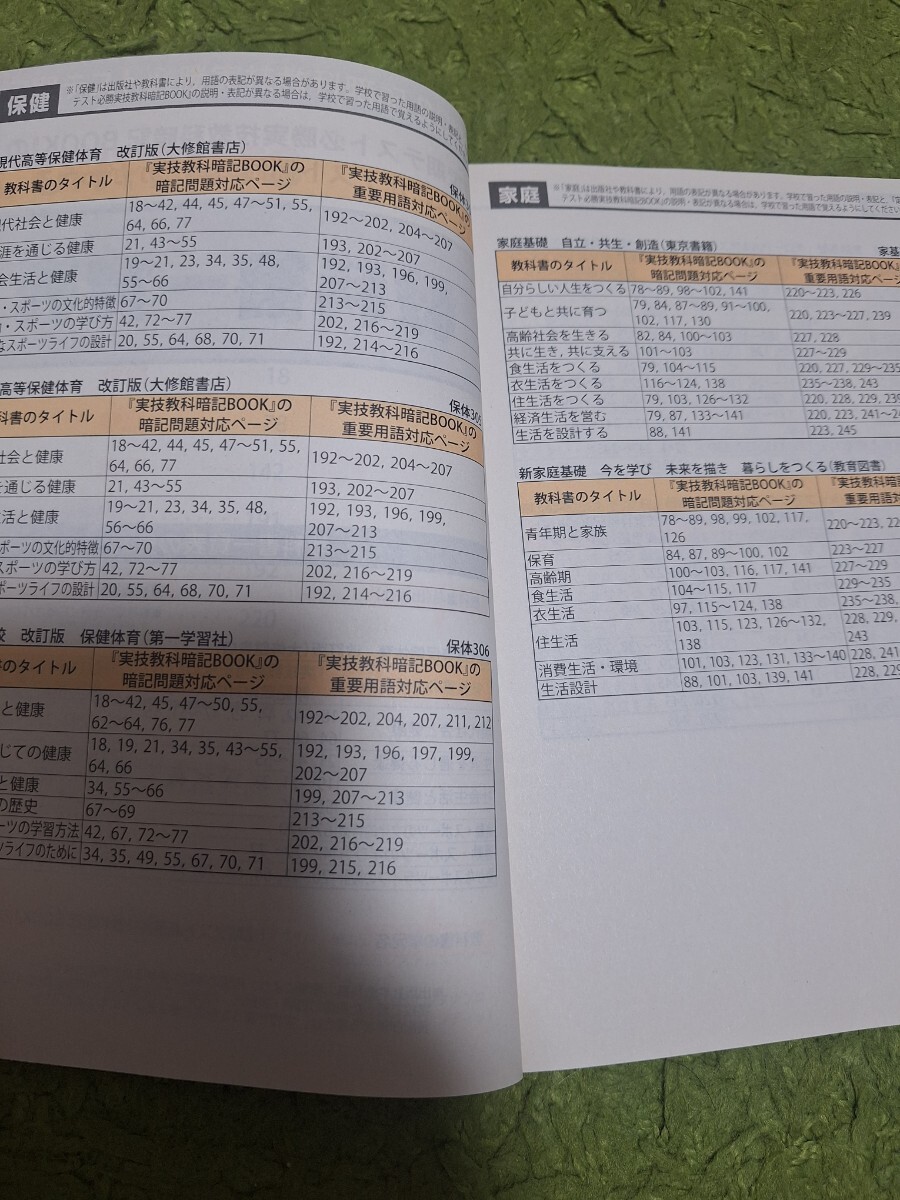 保健
※「保健」は出版社や教科書により、用語の表記が異なる場合があります。学校で習った用語の説明・表記と、
テスト必勝実技教科暗記BOOK』の説明・表記が異なる場合は、学校で習った用語で覚えるようにしてくだ
現代高等保健体育 改訂版(大修館書店)
保体
教科書のタイトル 『実技教科暗記BOOK』の 『実技教科暗記BOOK』の
暗記問題対応ページ 重要用語対応ページ
現代社会と健康 18〜42, 44, 45, 47〜51, 55, 192〜202, 204〜207
64, 66, 77
涯を通じる健康 21, 43〜55 193, 202〜207
会生活と健康 19〜21, 23, 34, 35, 48, 192, 193, 196, 199,
55〜66 207〜213
・スポーツの文化的特徴 67〜70 213〜215
・スポーツの学び方 42, 72〜77 202, 216〜219
なスポーツライフの設計 20, 55, 64, 68, 70, 71 192, 214〜216
高等保健体育 改訂版(大修館書店)
保体305
科書のタイトル 『実技教科暗記BOOK』の 『実技教科暗記BOOK』の
暗記問題対応ページ 重要用語対応ページ
社会と健康 18〜42, 44, 45, 47〜51, 55, 192〜202, 204〜207
64, 66, 77
を通じる健康 21, 43〜55 193, 202〜207
活と健康 19〜21, 23, 34, 35, 48, 192, 193, 196, 199,
56〜66 207〜213
ポーツの文化的特徴 67〜70 213〜215
スポーツの学び方 42, 72〜77 202, 216〜219
ポーツライフの設計 20, 55, 64, 68, 70, 71 192, 214〜216
校 改訂版 保健体育(第一学習社)
保体306
書のタイトル 『実技教科暗記BOOK』の 『実技教科暗記BOOK』の
暗記問題対応ページ 重要用語対応ページ
と健康 18〜42, 45, 47〜50, 55, 192〜202, 204, 207, 211, 212
62〜64, 76, 77
じての健康 18, 19, 21, 34, 35, 43〜55, 192, 193, 196, 197, 199,
64, 66 202〜207
と健康 34, 55〜66 199, 207〜213
の歴史 67〜69 213〜215
ーツの学習方法 42, 67, 72〜77 202, 216〜219
ツライフのために 34, 35, 49, 55, 67, 70, 71 199, 215, 216
家庭
※「家庭」は出版社や教科書により、用語の表記が異なる場合があります。学校で習った用語の説明・表記と、『定
テスト必勝実技教科暗記BOOK』の説明・表記が異なる場合は、学校で習った用語で覚えるようにしてください
家庭基礎 自立・共生・創造(東京書籍)
家基
教科書のタイトル 『実技教科暗記BOOK』の 『実技教科暗記BOOK』
暗記問題対応ページ 重要用語対応ペー
自分らしい人生をつくる 78〜89, 98〜102, 141 220〜223, 226
子どもと共に育つ 79, 84, 87〜89, 91〜100, 220, 223〜227, 239
102, 117, 130
高齢社会を生きる 82, 84, 100〜103 227, 228
共に生き, 共に支える 101〜103 227〜229
食生活をつくる 79, 104〜115 220, 227, 229〜235
衣生活をつくる 116〜124, 138 235〜238, 243
住生活をつくる 79, 103, 126〜132 220, 228, 229, 239
経済生活を営む 79, 87, 133〜141 220, 223, 241〜24
生活を設計する 88, 141 223, 245
新家庭基礎 今を学び 未来を描き 暮らしをつくる(教育図書)
教科書のタイトル 『実技教科暗記BOOK』の 『実技教科暗
暗記問題対応ページ 重要用語対
青年期と家族 78〜89, 98, 99, 102, 117, 220〜223, 22
126
保育 84, 87, 89〜100, 102 223〜227
高齢期 100〜103, 116, 117, 141 227〜229
食生活 104〜115, 117 229〜235
衣生活 97, 115〜124, 138 235〜238,
住生活 103, 115, 123, 126〜132, 228, 229,
138 243
消費生活・環境 101, 103, 123, 131, 133〜140 228, 241
生活設計 88, 101, 103, 139, 141 228, 229,